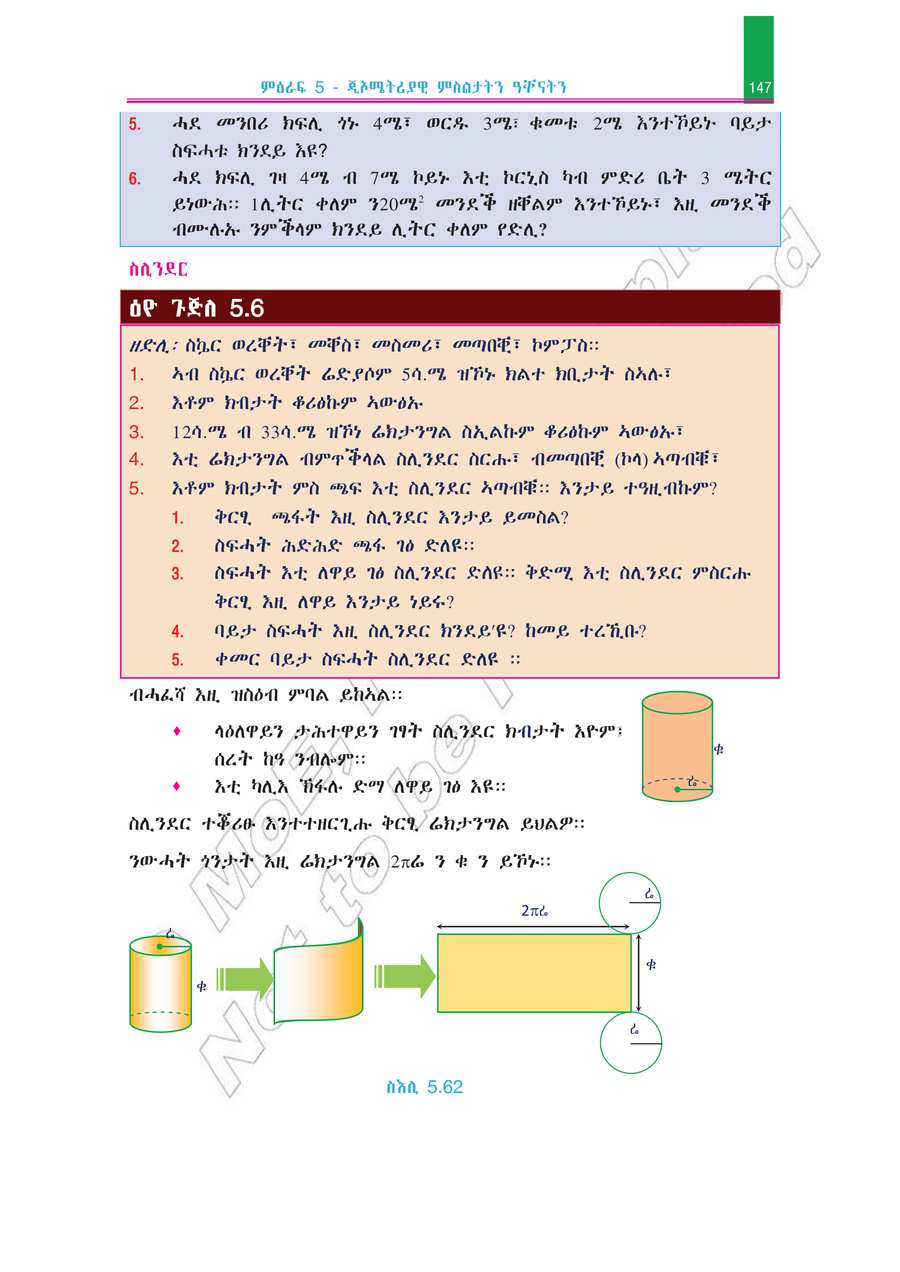 ምዕራፍ 5 - ጂኦሜትሪያዊ ምስልታትን ዓቐናትን 147
5. ሓደ መንበሪ ክፍሊ ጎኑ 4ሜ፣ ወርዱ 3ሜ፣ ቁመቱ 2ሜ እንተኾይኑ ባይታ
ስፍሓቱ ክንደይ እዩ?
6. ሓደ ክፍሊ ገዛ 4ሜ ብ 7ሜ ኮይኑ እቲ ኮርኒስ ካብ ምድሪ ቤት 3 ሜትር
ይነውሕ። 1ሊትር ቀለም ን20ሜ² መንደቕ ዘቐልም እንተኾይኑ፣ እዚ መንደቕ
ብሙሉኡ ንምቕላም ክንደይ ሊትር ቀለም የድሊ?
ስሊንደር
ዕዮ ጉጅለ 5.6
ዘድሊ፡ ስኳር ወረቐት፣ መቐስ፣ መስመሪ፣ መጣበቒ፣ ኮምፓስ።
1. ኣብ ስኳር ወረቐት ሬድያሶም 5ሳ.ሜ ዝኾኑ ክልተ ክቢታት ስኣሉ፣
2. እቶም ክብታት ቆሪፅኩም ኣውፅኡ
3. 12ሳ.ሜ ብ 33ሳ.ሜ ዝኾነ ሬክታንግል ስኢልኩም ቆሪፅኩም ኣውፅኡ፣
4. እቲ ሬክታንግል ብምጥቕላል ስሊንደር ስርሑ፣ ብመጣበቒ (ኮላ) ኣጣብቑ፣
5. እቶም ክብታት ምስ ጫፍ እቲ ስሊንደር ኣጣብቑ። እንታይ ተዓዚብኩም?
1. ቅርፂ ጫፋት እዚ ስሊንደር እንታይ ይመስል?
2. ስፍሓት ሕድሕድ ጫፋ ገፅ ድለዩ።
3. ስፍሓት እቲ ለዋይ ገፅ ስሊንደር ድለዩ። ቅድሚ እቲ ስሊንደር ምስርሑ
ቅርፂ እዚ ለዋይ እንታይ ነይሩ?
4. ባይታ ስፍሓት እዚ ስሊንደር ክንደይ'ዩ? ከመይ ተረኺቡ?
5. ቀመር ባይታ ስፍሓት ስሊንደር ድለዩ ።
ብሓፈሻ እዚ ዝስዕብ ምባል ይከኣል።
♦ ላዕለዋይን ታሕተዋይን ገፃት ስሊንደር ክብታት እዮም፤
ሰረት ከዓ ንብሎም።
♦ እቲ ካሊእ ኽፋሉ ድማ ለዋይ ገፅ እዩ።
ቁ
ሬ
ስሊንደር ተቖሪፁ እንተተዘርጊሑ ቅርፂ ሬክታንግል ይህልዎ።
ንውሓት ጎንታት እዚ ሬክታንግል 2πሬ ን ቁ ን ይኸኑ።
ሬ
ቁ
2πሬ
ሬ
ቁ
ሬ
ስእሊ 5.62